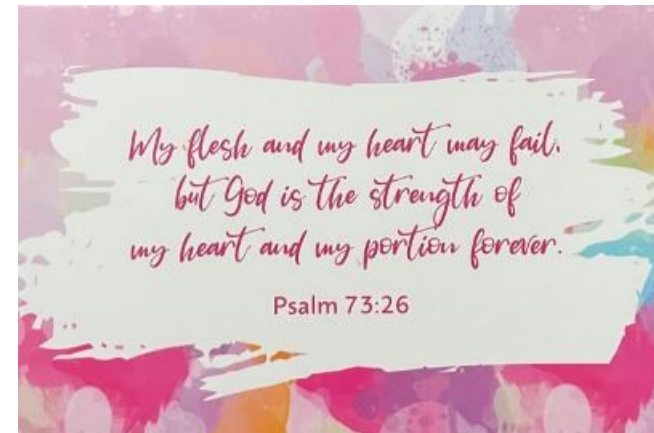 My flesh and my heart may fail,
but God is the strength of
my heart and my portion forever.
Psalm 73:26